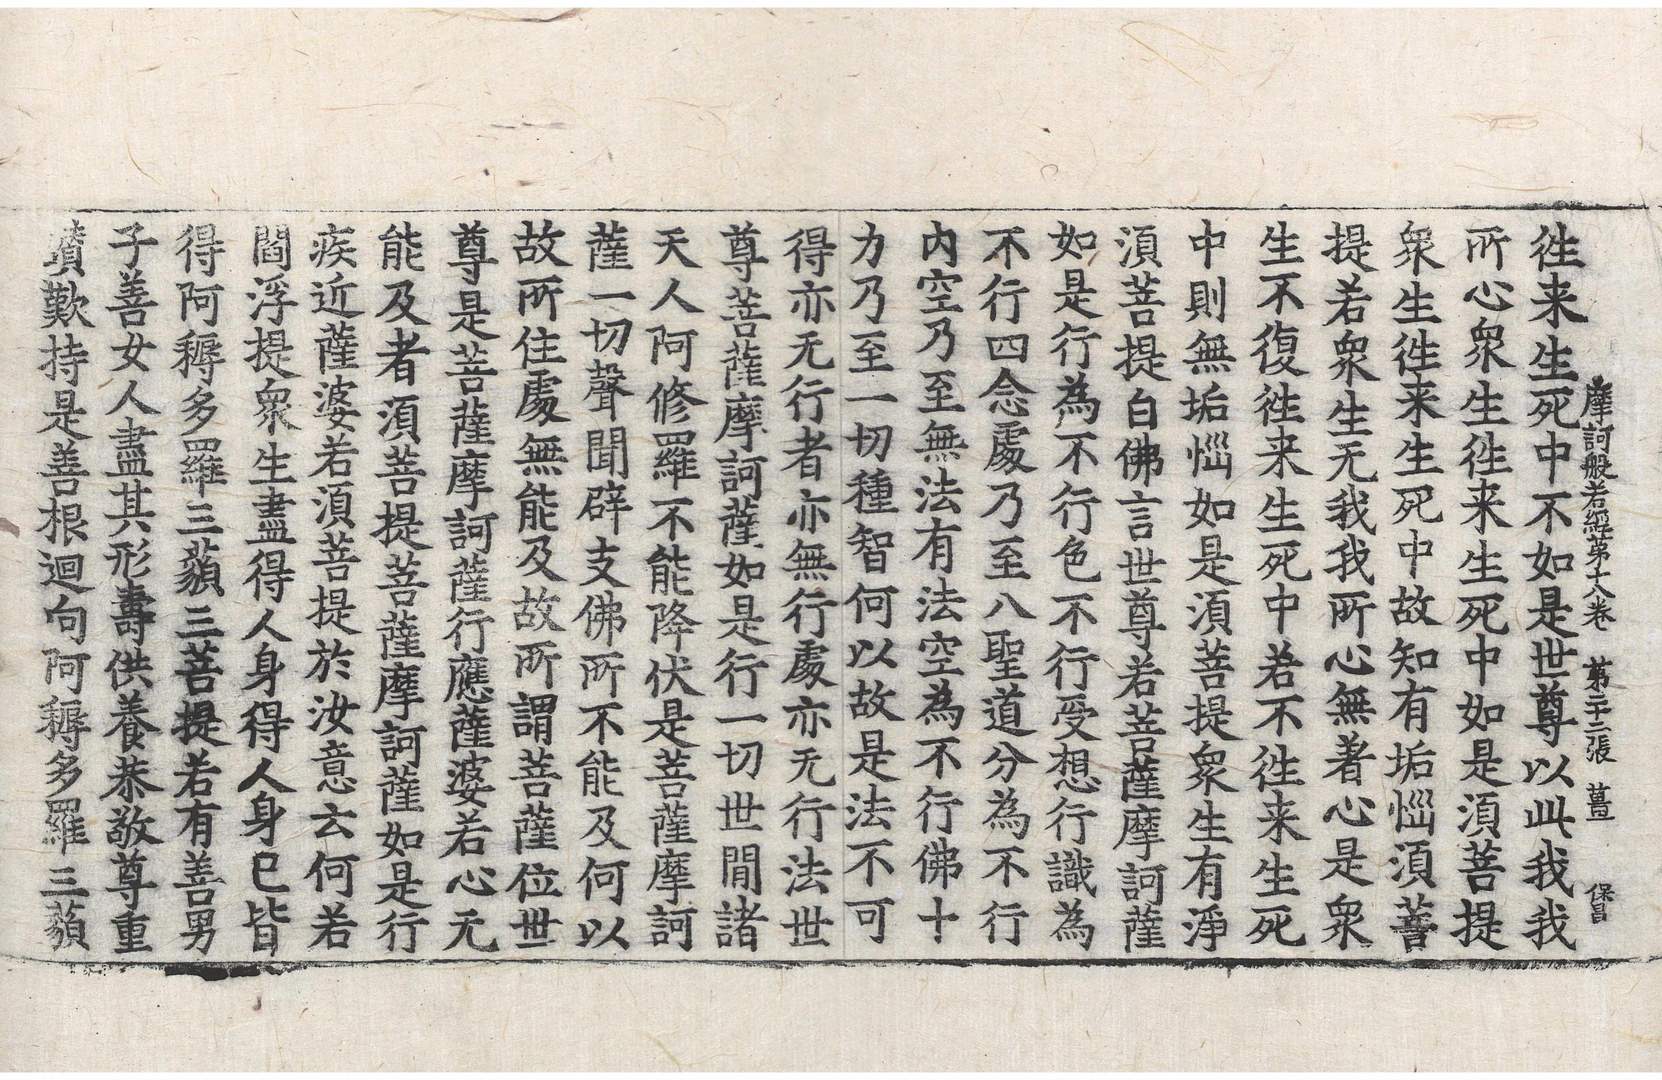 摩訶般若經第十八卷 第二十二張 薑 保昌
徃来生死中不如是世尊以此我我
所心衆生徃来生死中如是湏菩提
衆生徃来生死中故知有垢惱湏菩
提若衆生无我我所心無著心是衆
生不復徃来生死中若不徃来生死
中則無垢惱如是湏菩提衆生有淨
湏菩提白佛言世尊若菩薩摩訶薩
如是行為不行色不行受想行識為
不行四念處乃至八聖道分為不行
内空乃至無法有法空為不行佛十
力乃至一切種智何以故是法不可
得亦无行者亦無行處亦无行法世
尊菩薩摩訶薩如是行一切世閒諸
天人阿修羅不能降伏是菩薩摩訶
薩一切聲聞辟支佛所不能及何以
故所住處無能及故所謂菩薩位世
尊是菩薩摩訶薩行應薩婆若心无
能及者湏菩提菩薩摩訶薩如是行
疾近薩婆若湏菩提於汝意云何若
閻浮提衆生盡得人身得人身已皆
得阿耨多羅三藐三菩提若有善男
子善女人盡其形壽供養恭敬尊重
讃歎持是善根迴向阿耨多羅三藐